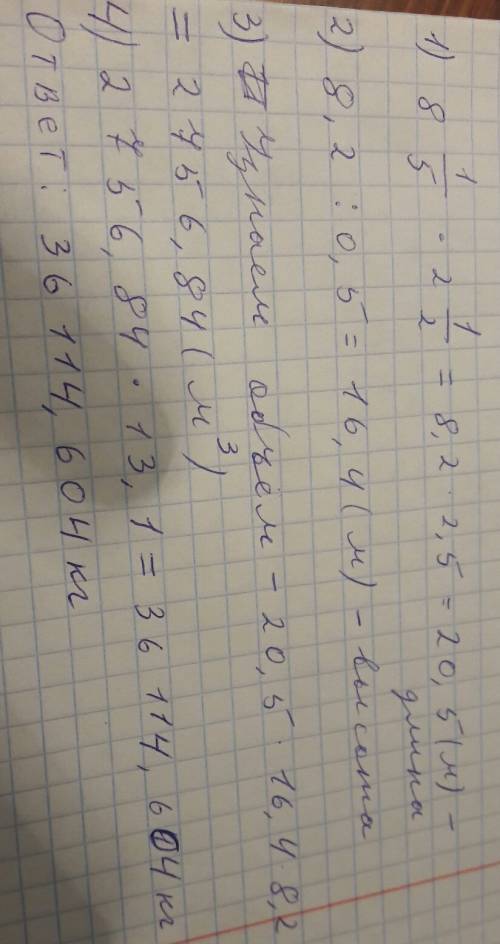 1) 8 1/5 · 2 1/2 = 8,2 · 2,5 = 20,5 (м) –
длина
2) 8,2 : 0,5 = 16,4 (м) – высота
3) Узнаем объём – 20,5 · 16,4 · 8,2
= 2756,84 (м³)
4) 2756,84 · 13,1 = 36 114,604 кг
Ответ: 36 114,604 кг